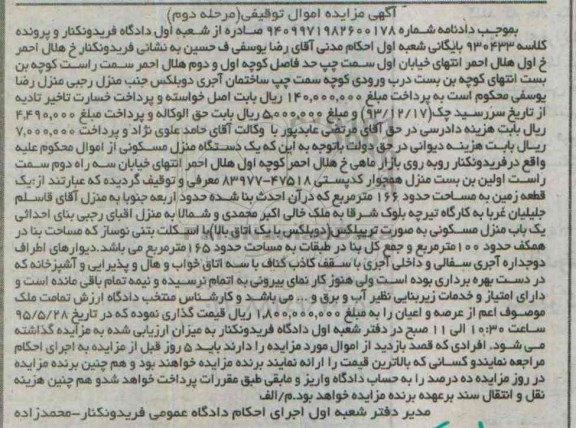 آگهی مزایده اموال توقیفی(مرحله دوم)
بموجب دادنامه شماره ۹۴۰۹۹۷۱۹۸۲۶۰۰۱۷۸ صادره از شعبه اول دادگاه فریدونکنار و پرونده
کلاسه ۹۳۰۴۳۳ بایگانی شعبه اول احکام مدنی آقای رضا یوسفی ف حسین به نشانی فریدونکنار خ هلال احمر
خ اول هلال احمر انتهای خیابان اول سمت چپ حد فاصل کوچه اول و دوم هلال احمر سمت راست کوچه بن
بست انتهای کوچه بن بست درب ورودی کوچه سمت چپ ساختمان آجری دوبلکس جنب منزل رجبی منزل رضا
یوسفی محکوم است به پرداخت مبلغ ۱۴۰,۰۰۰,۰۰۰ ریال بابت اصل خواسته و پرداخت خسارت تاخیر تادیه
از تاریخ سررسید چک(۹۳/۱۲/۱۷) و مبلغ ۵,۰۰۰,۰۰۰ ریال بابت حق الوکاله و پرداخت مبلغ ۴,۴۹۰,۰۰۰
ریال بابت هزینه دادرسی در حق آقای مرتضی عابدپور با وکالت آقای حامد علوی نژاد و پرداخت ۷,۰۰۰,۰۰۰
ریال بابت هزینه دیوانی در حق دولت باتوجه به این که یک دستگاه منزل مسکونی از اموال محکوم علیه
واقع در فریدونکنار روبه روی بازار ماهی خ هلال احمر کوچه اول هلال احمر انتهای خیابان سه راه دوم سمت
راست اولین بن بست منزل همجوار کدپستی ۴۷۵۱۸-۸۳۹۷۷ معرفی و توقیف گردیده که عبارتند از:یک
قطعه زمین به مساحت حدود ۱۶۶ مترمربع که درآن احداث بنا شده حدود اربعه جنوبا به منزل آقای قاسلم
جلیلیان غربا به کارگاه تیرچه بلوک شرقا به ملک خالی اکبر محمدی و شمالا به منزل اقبای رجبی بنای احداثی
یک باب منزل مسکونی به صورت تریپلکس(دوبلکس با یک اتاق بالا)با اسکلت بتنی نوساز که مساحت بنا در
همکف حدود ۱۰۰مترمربع و جمع کل بنا در طبقات به مساحت حدود ۱۶۵مترمربع می باشد.دیوارهای اطراف
دوجداره آجری سفالی و داخلی آجری با سقف کاذب کناف با سه اتاق خواب و هال و پذیرایی و آشپزخانه که
در دست بهره برداری بوده است ولی هنوز کار نمای بیرونی به اتمام نرسیده و نیمه تمام باقی مانده است و
دارای امتیاز و خدمات زیربنایی نظیر آب و برق و... می باشد و کارشناس منتخب دادگاه ارزش تمامت ملک
موصوف اعم از عرصه و اعیان را به مبلغ ۱,۸۰۰,۰۰۰,۰۰۰ ریال قیمت گذاری نموده که در تاریخ ۹۵/۵/۲۸
ساعت ۱۰:۳۰ الی ۱۱ صبح در دفتر شعبه اول دادگاه فریدونکنار به میزان ارزیابی شده به مزایده گذاشته
می شود. افرادی که قصد بازدید از اموال مورد مزایده را دارند باید ۵ روز قبل از مزایده به اجرای احکام
مراجعه نمایندو کسانی که بالاترین قیمت را ارائه نمایند برنده مزایده خواهند بود و هم چنین برنده مزایده
در روز مزایده ده درصد را به حساب دادگاه واریز و مابقی طبق مقررات پرداخت خواهد شدو هم چنین هزینه
نقل و انتقال سند برعهده برنده مزایده خواهد بود.م/الف
مدیر دفتر شعبه اول اجرای احکام دادگاه عمومی فریدونکنار-محمدزاده